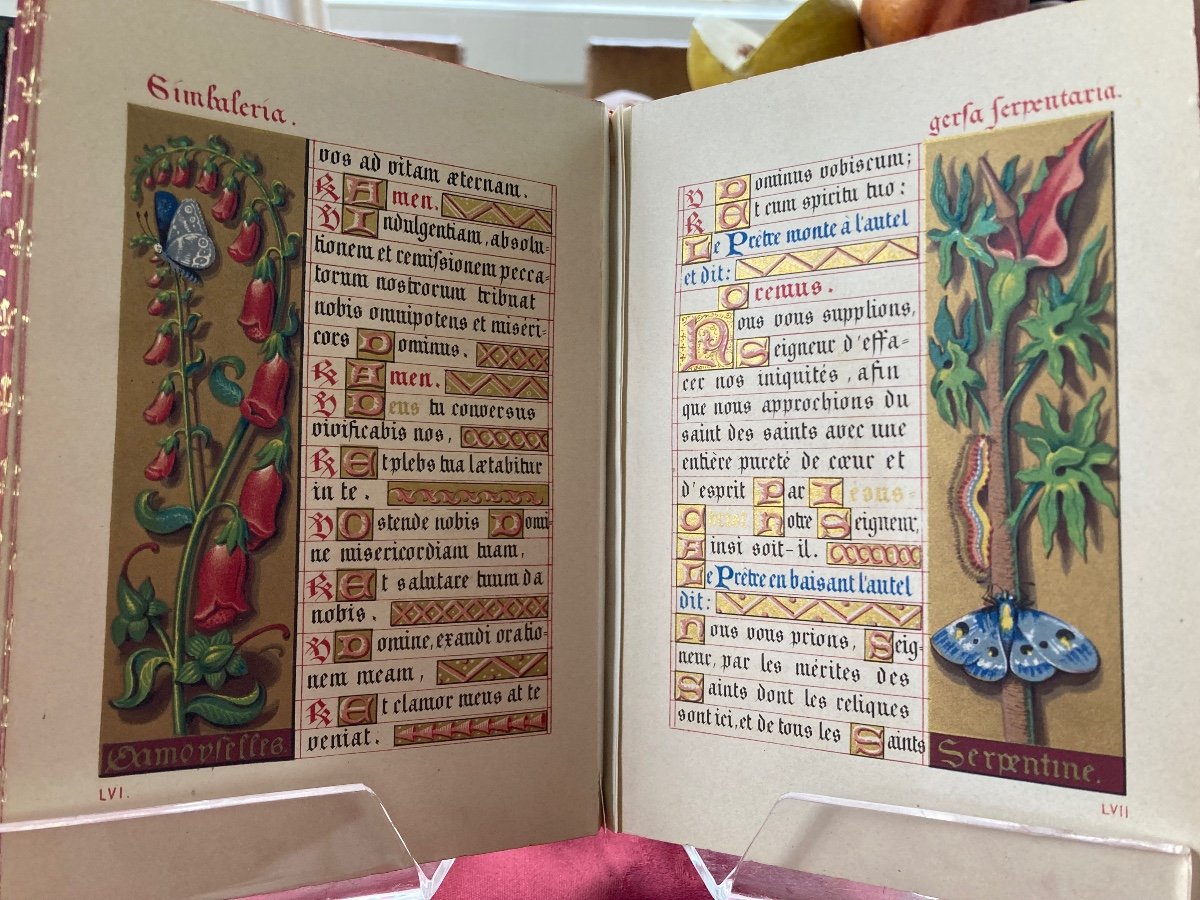 Simbaleria.
vos ad vitam æternam.
℟ Amen.
℣ Indulgentiam, absolu-
tionem et remissionem pecca-
torum nostrorum tribuat
nobis omnipotens et miseri-
cors Dominus.
℟ Amen.
℣ Deus tu conversus
vivificabis nos,
℟ Et plebs tua lætabitur
in te.
℣ Ostende nobis Domi-
ne misericordiam tuam,
℟ Et salutare tuum da
nobis.
℣ Domine, exaudi oratio-
nem meam,
℟ Et clamor meus at te
veniat.
Damoyselles.
LVI.
gersa serpentaria.
℣ Dominus vobiscum;
℟ Et cum spiritu tuo:
Le Prêtre monte à l'autel
et dit:
Oremus.
Nous vous supplions,
Seigneur d'effa-
cer nos iniquités, afin
que nous approchions du
saint des saints avec une
entière pureté de cœur et
d'esprit Par Jésus-
Christ Notre Seigneur,
Ainsi soit-il.
Le Prêtre en baisant l'autel
dit:
Nous vous prions, Seig-
neur, par les mérites des
Saints dont les reliques
sont ici, et de tous les Saints
Serpentine.
LVII